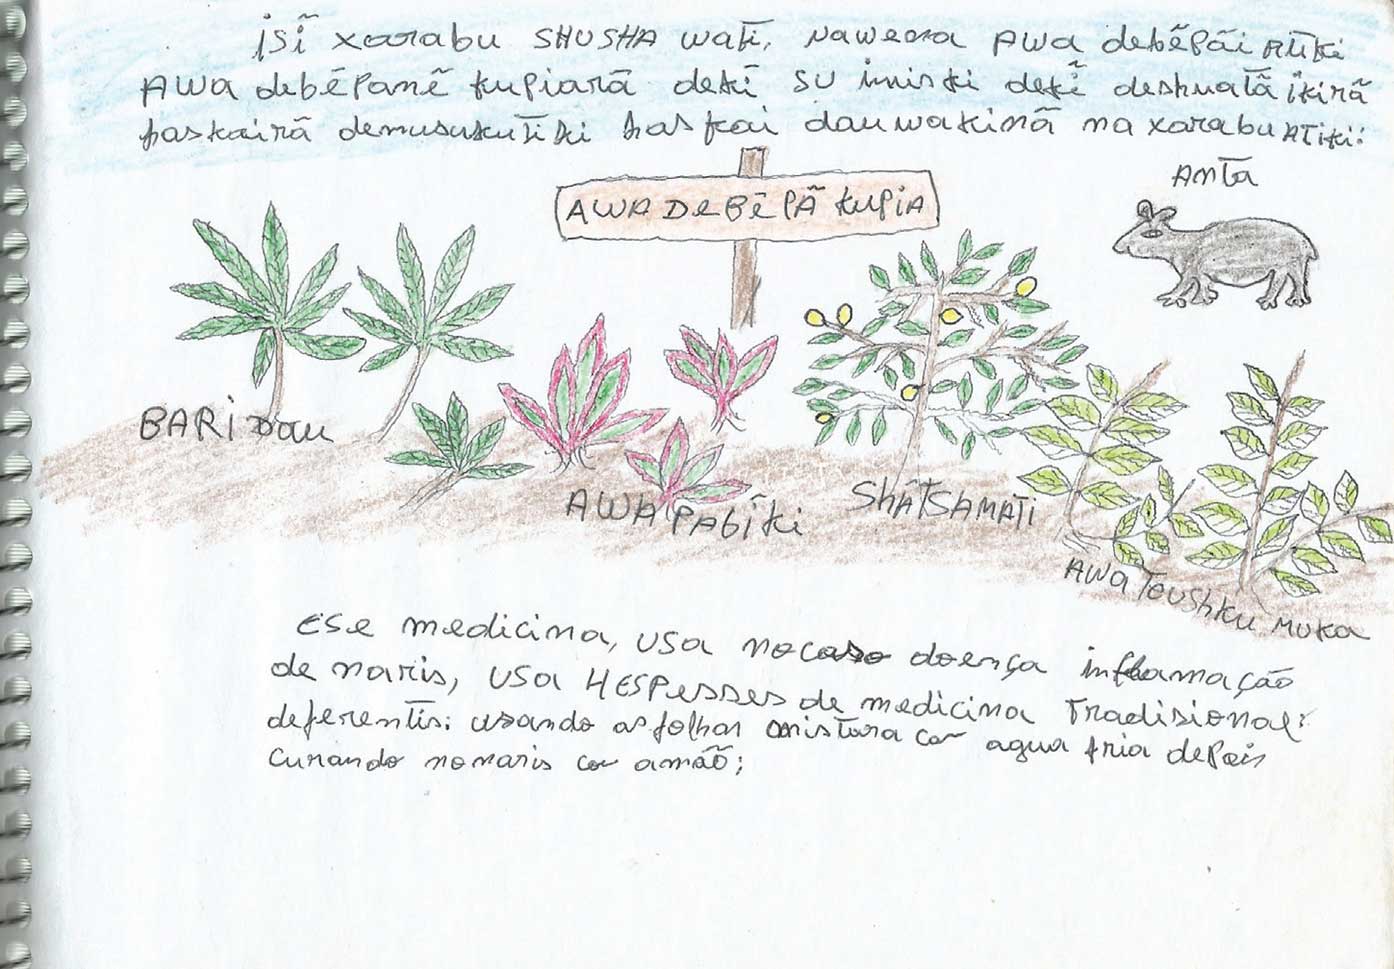 isĩ xarabu SHUSHA watĩ, naweara AWA debẽpãi rũki
AWA debẽpanẽ kupiarã detĩ su iniski detĩ deshuatã ikirã
haskairã demusukutĩski haskai dauwakinã na xarabu atiki:
Anta
AWA DeBẽPÃ kupiA
BARi Dau
AWA PABĩki
SHÃTSAMATi
AWA Toushku MUKA
Ese medicina, usa no caso doença inflamação
de naris, usa 4 espesses de medicina Tradisional:
deferentis: usando as folhas mistura con agua fria depois
Curando no naris con a mão;